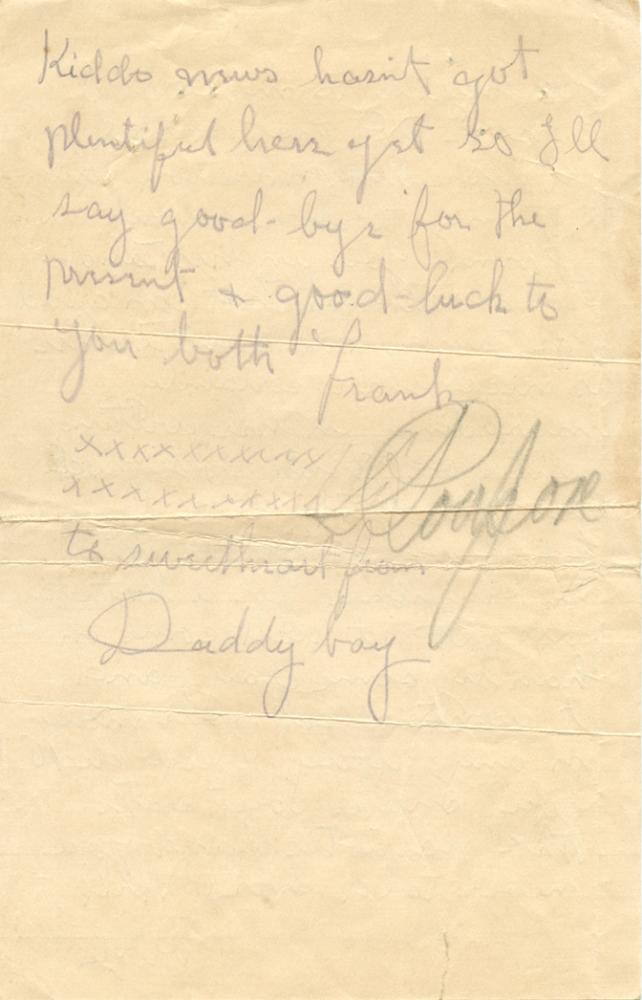 Kiddo news hasn't got
plentiful here yet so I'll
say good-bye for the
present & good-luck to
you both Frank
xxxxxxxxxx
xxxxxxxxxx
to sweetheart from
Daddy boy